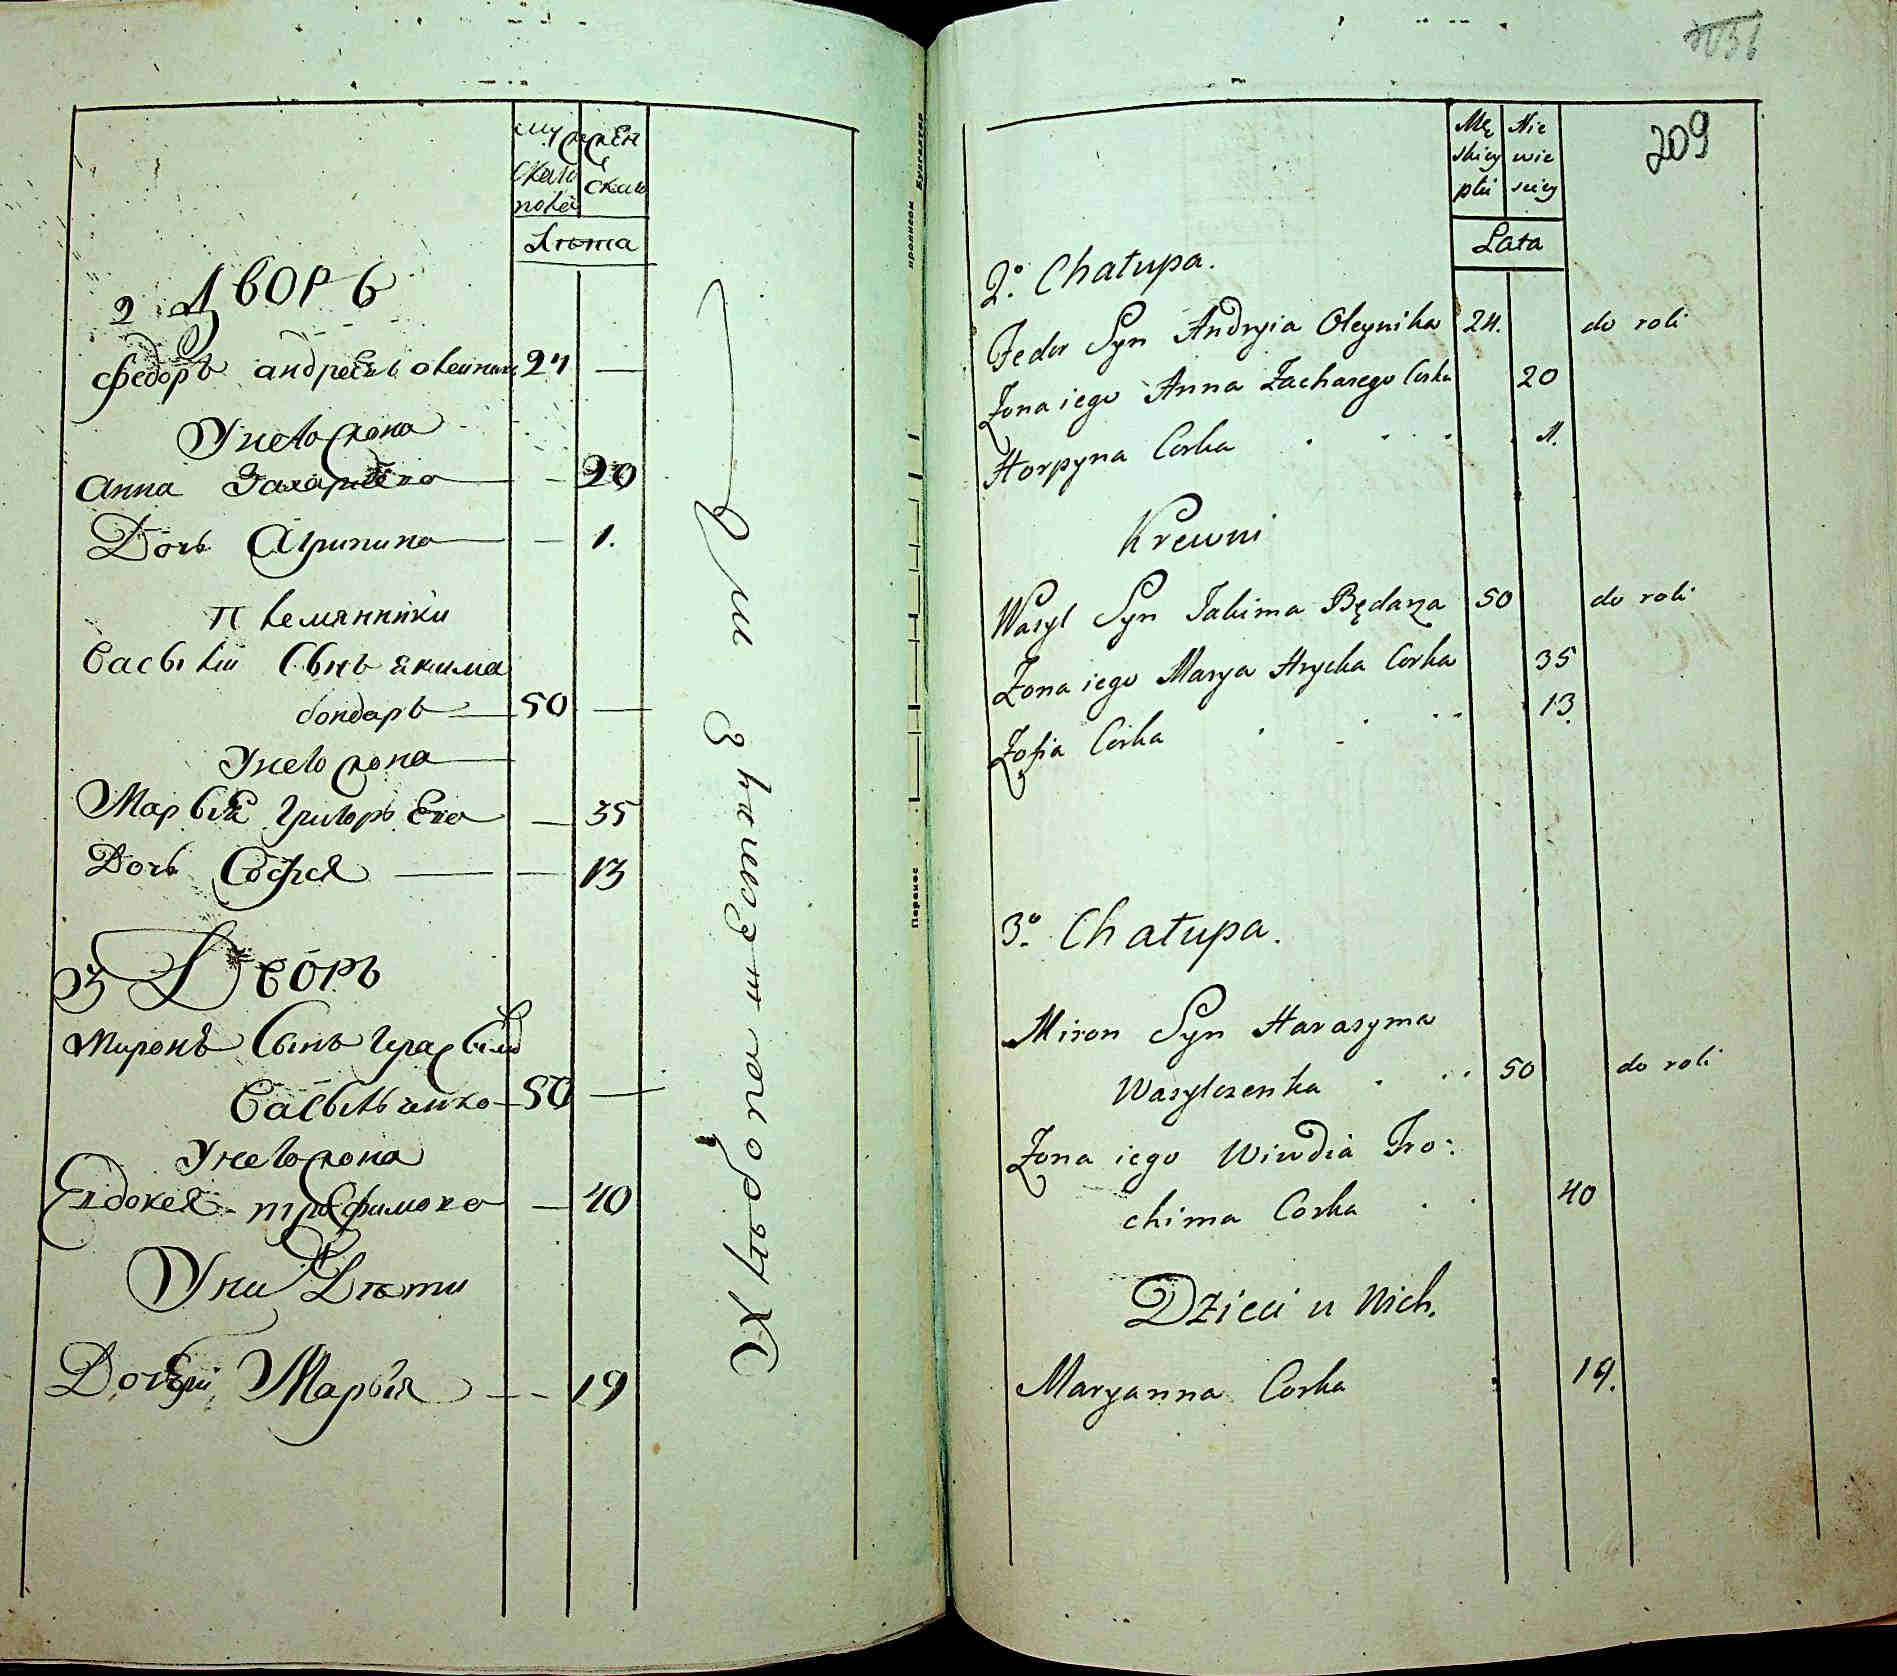 муж
скаго
пола
жен
скаго
Лѣта
2 Дворъ
Федоръ андреевъ олейникъ 24 —
Унего жона
Анна Захариева — 20
Дочь Агрипина — 1.
Племянники
Василий Сынъ якима
бондаръ — 50 —
Унего жона
Марья Григорьева — 35
Дочь София — 13
3 Дворъ
Миронъ Сынъ Герасима
Васильченко — 50 —
Унего жона
Евдокея трофимова — 40
Уних Дѣти
Дочери Марья — 19
Хлѣбопашествують
209
Mę
skiey
płci
Nie
wie
sciey
Lata
2º. Chałupa.
Fedor Syn Andryia Oleynika 24. do roli
Zona iego Anna Zacharego Corka 20
Horpyna Corka . . . . 1.
Krewni
Wasyl Syn Jakima Będarza 50 do roli
Zona iego Marya Hrycka Corka 35
Zofia Corka . . . . 13
3º. Chałupa.
Miron Syn Harasyma
Wasylczenka . . . 50 do roli
Zona iego Wiwdia Tro:
chima Corka . . 40
Dzieci u Nich.
Maryanna Corka 19.